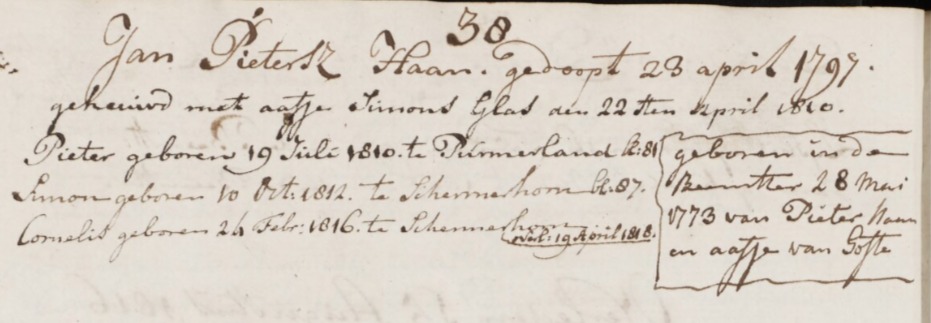 38
Jan Pietersz Haan. gedoopt 23 april 1797.
gehuuwd met aafje Simons Glas den 22sten April 1810.
Pieter geboren 19 Juli 1810. te Purmerland bl: 81
Simon geboren 10 Oct: 1812. te Schermerhorn bl: 87.
Cornelis geboren 24 Febr: 1816. te Schermerhorn
overl: 19 April 1818.
geboren in de
Beemster 28 Mai
1773 van Pieter Haan
en aafje van Goste